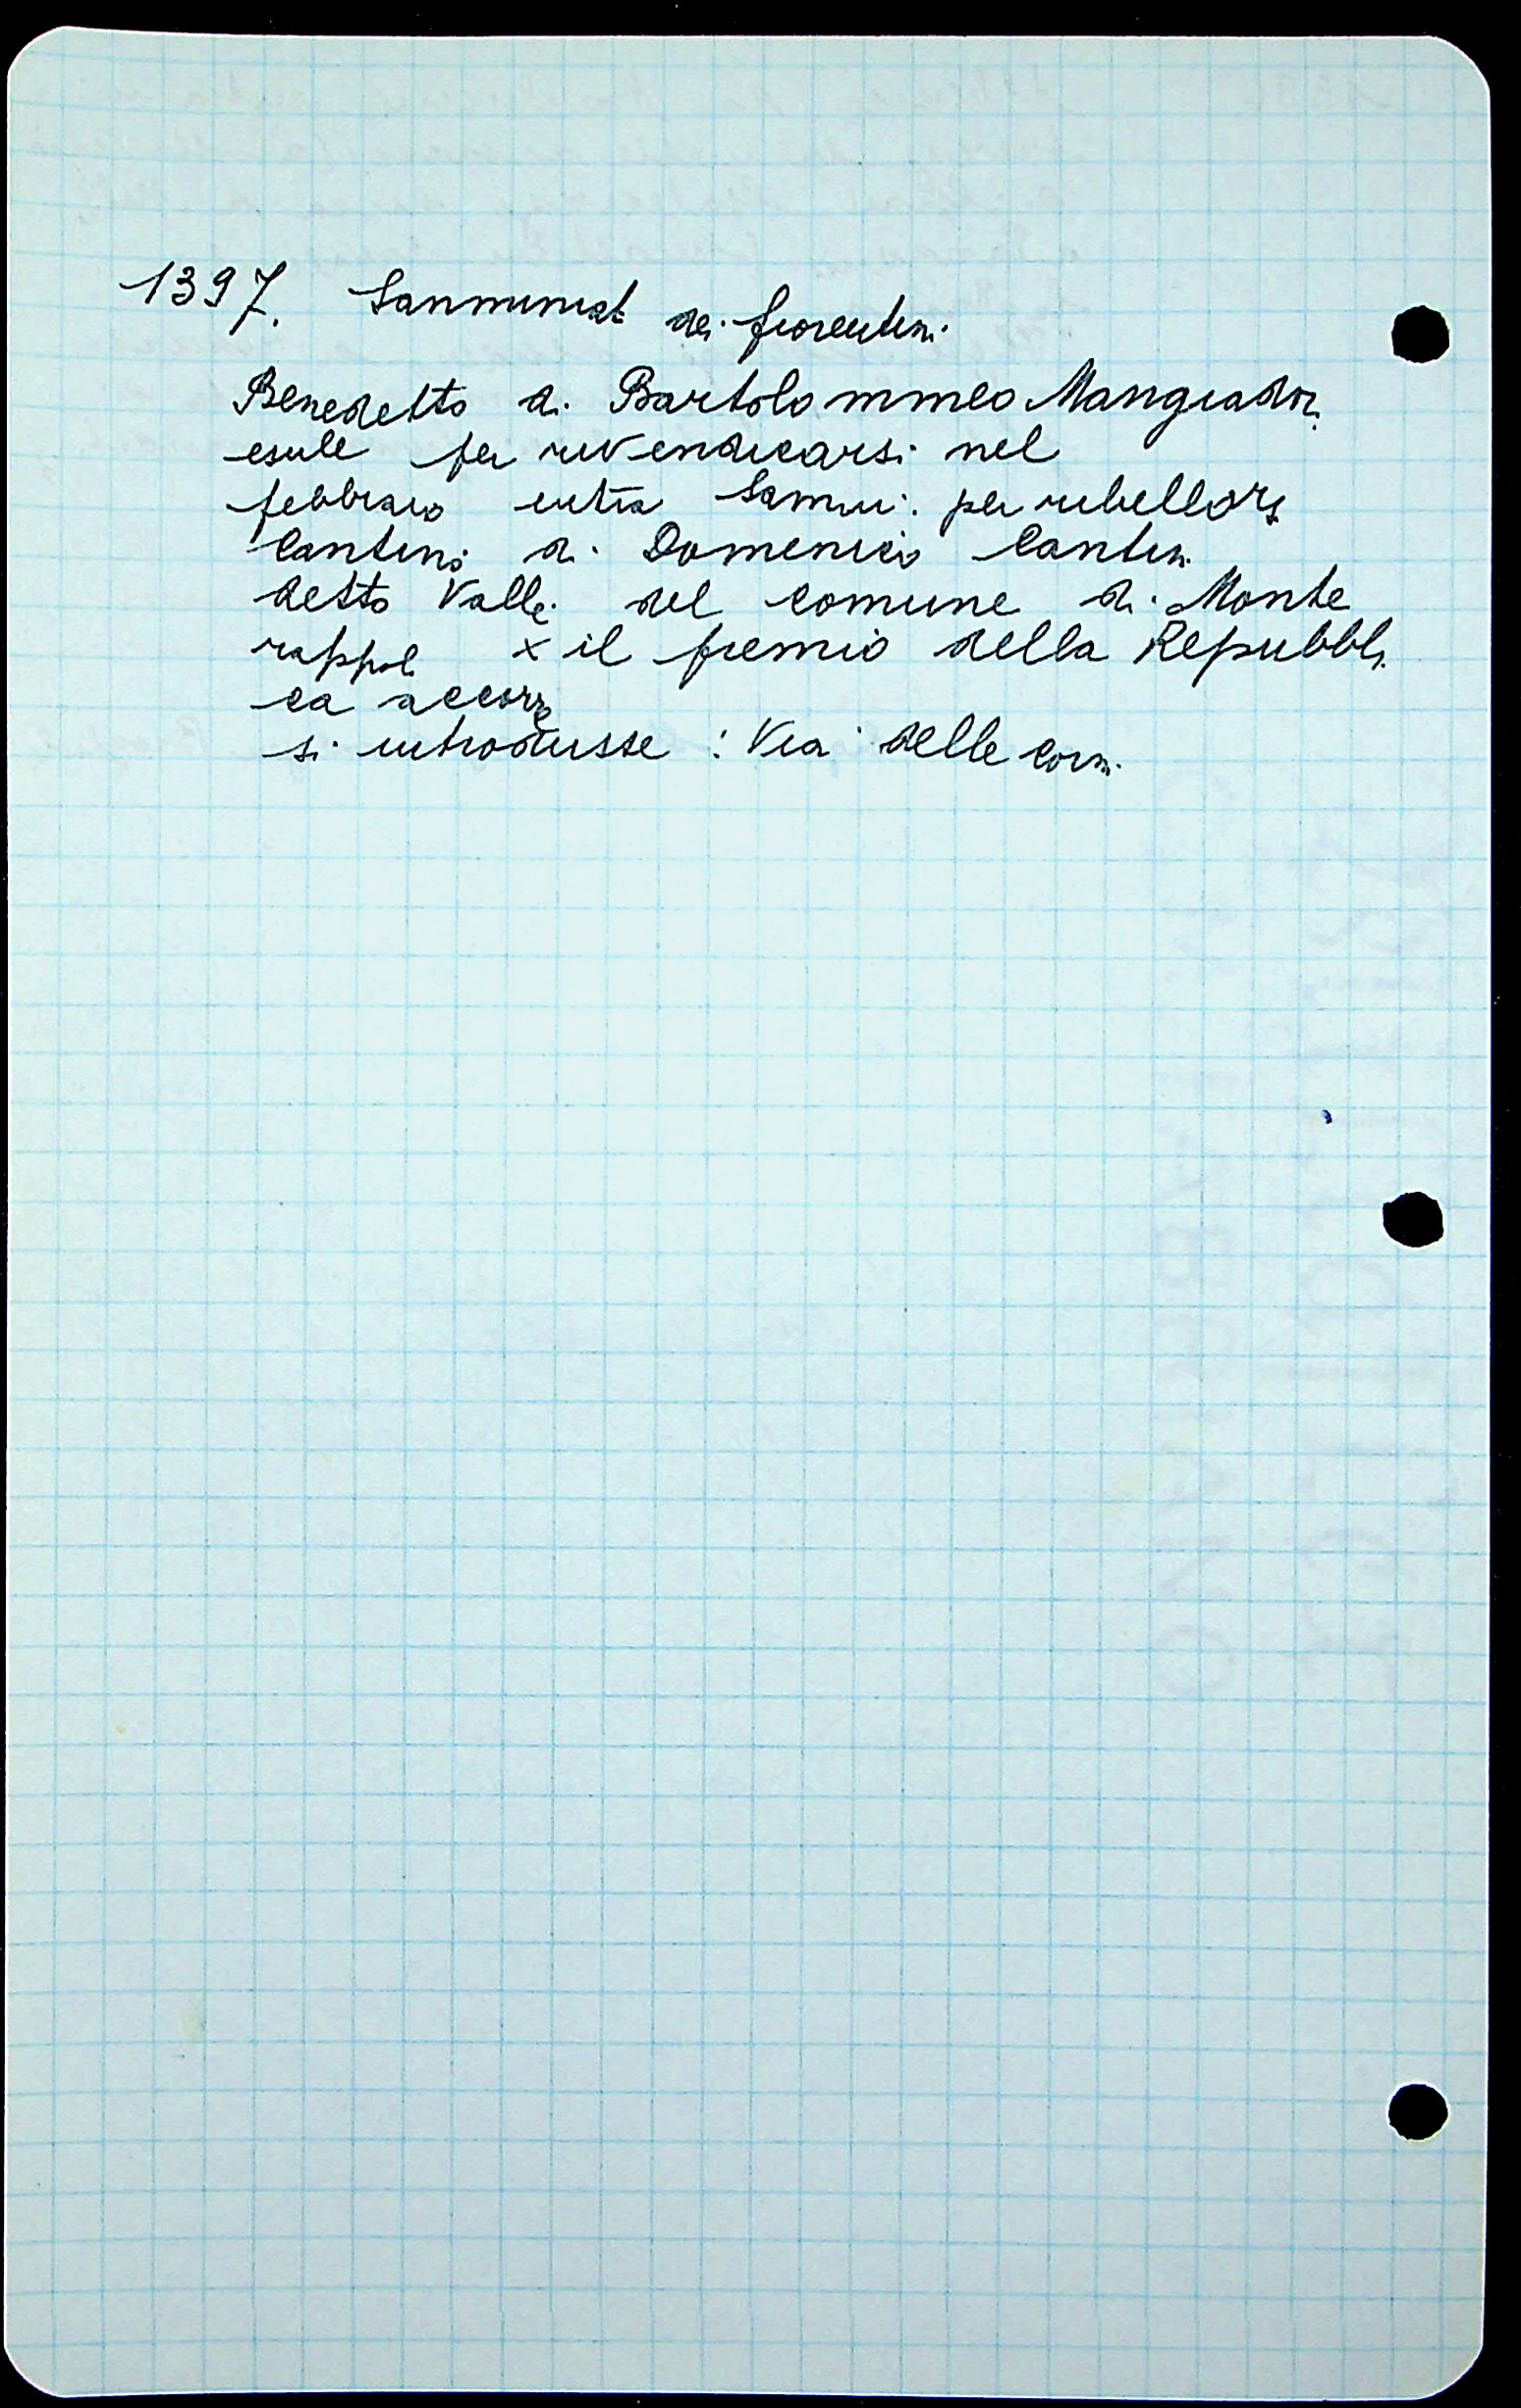 1397. Sanminiat dei fiorentini
Benedetto di Bartolommeo Mangiadori
esule per rivendicarsi nel
febbraio entra Samin. per ribellars
Cantino di Domenico Cantini
detto Valle del comune di Monte
rappoli x il premio della Repubbli
ca accorse
si introdusse : Via delle corn.